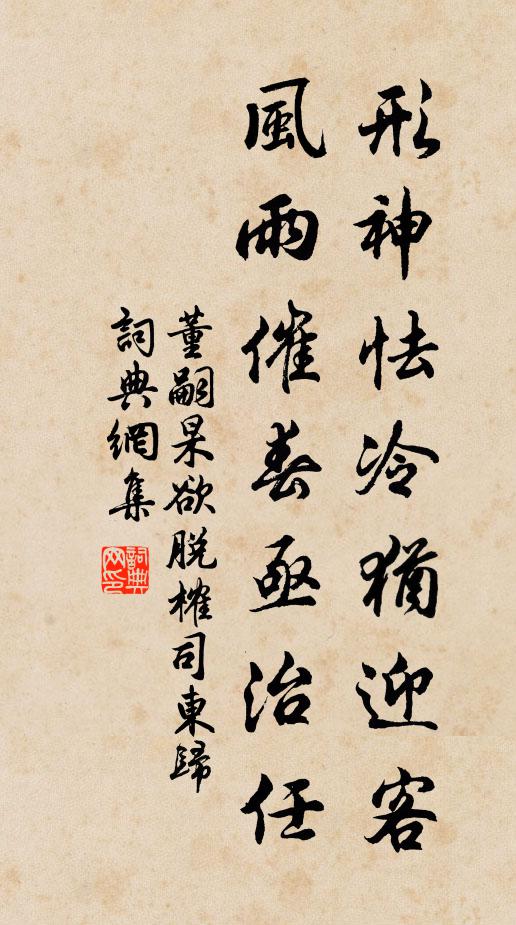 形神怯冷猶迎客
風雨催春亟治任
董嗣杲欲脫榷司東歸
詞典網集
詞典
网印